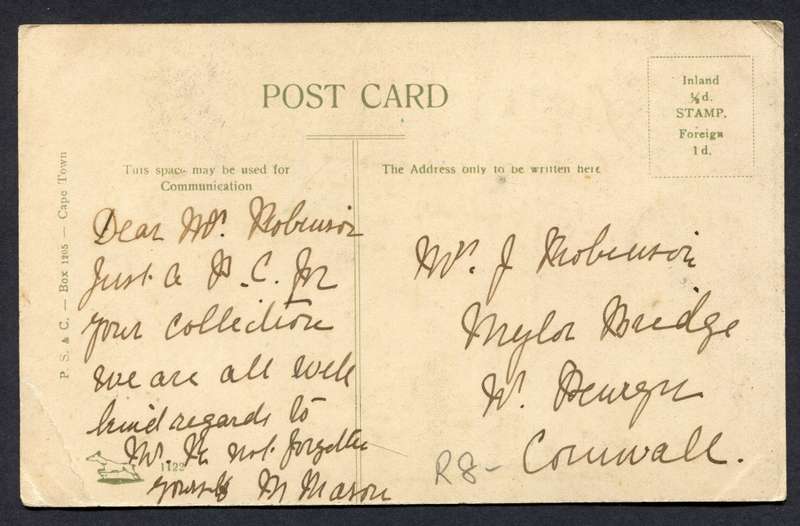 POST CARD
Inland
½d.
STAMP.
Foreign
1d.
This space may be used for
Communication
The Address only to be written here.
P. S. & C. — Box 1205 — Cape Town
Dear Mr. Robinson
Just a P.C. for
your collection
we are all well
kind regards to
Mr. R not forgetting
yourself M Mason
1122
Mr. J Robinson
Mylor Bridge
Nr. Penryn
Cornwall.
R8-